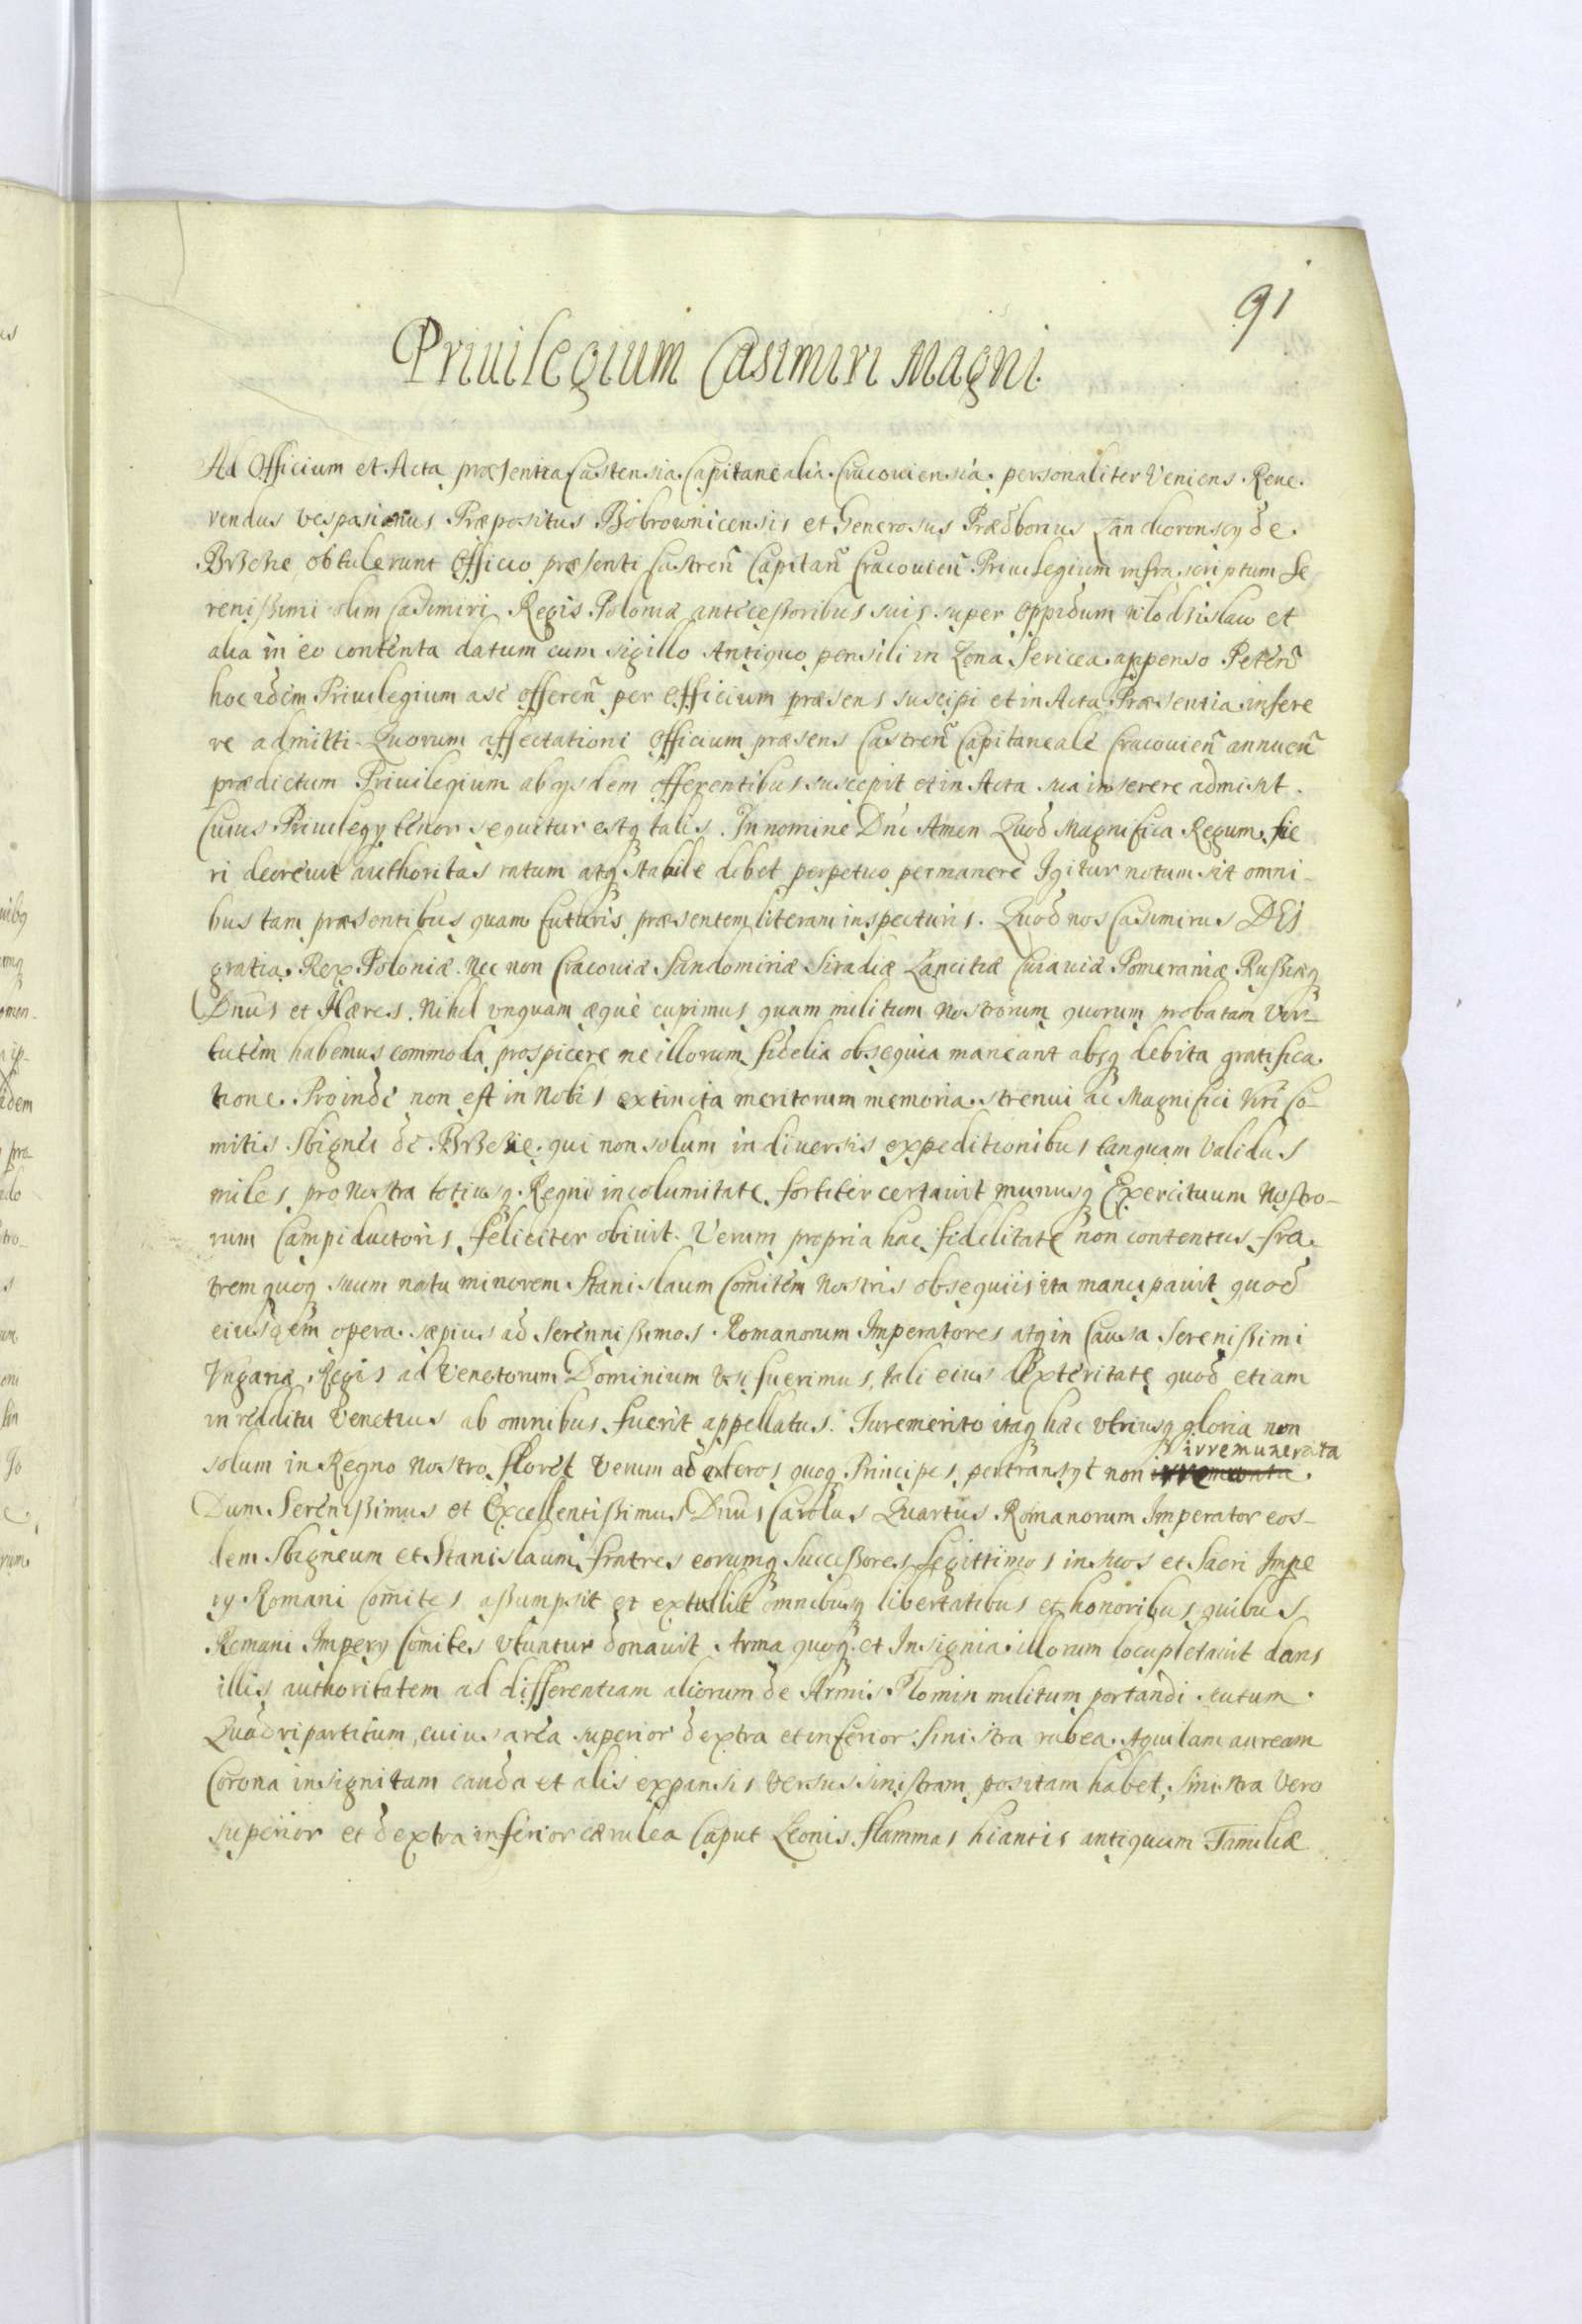 91
Priuilegium Casimiri Magni.
Ad Officium et Acta præsentia Castensia Capitanealia Cracouiensia personaliter Veniens Reue.
rendus Vespasianus Præpositus Bobrownicensis et Generosus Prædborius Lanckoronscy de
Brzezie, obtulerunt Officio præsenti Castreñ Capitañ Cracouieñ Priuilegium infra scriptum Se
renißimi olim Casimiri Regis Poloniæ anteceßoribus suis super Oppidum Wlodzislaw et
alia in eo contenta datum cum sigillo Antiquo pensili in Zona Sericea appenso Peteñ
hoc idem Priuilegium a se offereñ per Officium præsens suscipi et in Acta Præsentia insere
re admitti. Quorum affectationi Officium præsens Castreñ Capitaneale Cracouieñ annueñ
prædictum Priuilegium ab ijsdem offerentibus suscepit et in Acta sua inserere admisit.
Cuius Priuilegy tenor sequitur estq talis. In nomine Dñi Amen Quod Magnifica Regum fie
ri decreuit authoritas ratum atq stabile debet perpetuo permanere Igitur notum sit omni-
bus tam præsentibus quam futuris præsentem literam inspecturis. Quod nos Casimirus DEI
gratia Rex Poloniæ. Nec non Cracouiæ Sandomiriæ Siradiæ Lancitiæ Cuiauiæ Pomeraniæ Rußiæq
Dnus et Hæres. Nihil vnquam æquè cupimus quam militum Nostrorum quorum probatam Vir-
tutem habemus commoda prospicere ne illorum fidelia obsequia maneant absq debita gratifica.
tione. Proinde non est in Nobis extincta meritorum memoria strenui ac Magnifici Viri Co-
mitis Sbignei de Brzezie qui non solum in diuersis expeditionibus tanquam Validus
miles pro Nostra totiusq Regni incolumitate fortiter certauit munusq Exercituum Nostro-
rum Campiductoris feliciter obiuit. Verum propria hac fidelitate non contentus fra-
trem quoq suum natu minorem Stanislaum Comitem Nostris obsequiis ita mancipauit quod
eiusdem opera sæpius ad Serennißimos Romanorum Imperatores atq in Causa Serenißimi
Vngariæ Regis ad Venetorum Dominium vsi fuerimus, tali eius dexteritate quod etiam
in redditu Venetus ab omnibus fuerit appellatus. Iuremerito itaq hæc vtriusq gloria non
solum in Regno Nostro floret Verum ad exteros quoq Principes pertransyt non irremunerata
Dum Serenißimus et Excellentißimus Dnus Carolus Quartus Romanorum Imperator eos-
dem Sbigneum et Stanislaum fratres eorumq Succeßores legittimos in suos et Sacri Impe
ry Romani Comites aßumpsit et extullit omnibusq libertatibus et honoribus quibus
Romani Impery Comites vtuntur donauit Arma quoq et Insignia illorum locupletauit dans
illis authoritatem ad differentiam aliorum de Armis Plomin militum portandi scutum
Quadripartitum, cuius area superior dextra et inferior sinistra rubea Aquilam auream
Corona insignitam cauda et alis expansis versus sinistram positam habet, sinistra Vero
superior et dextra inferior cærulea Caput Leonis flammas hiantis antiquum Familiæ